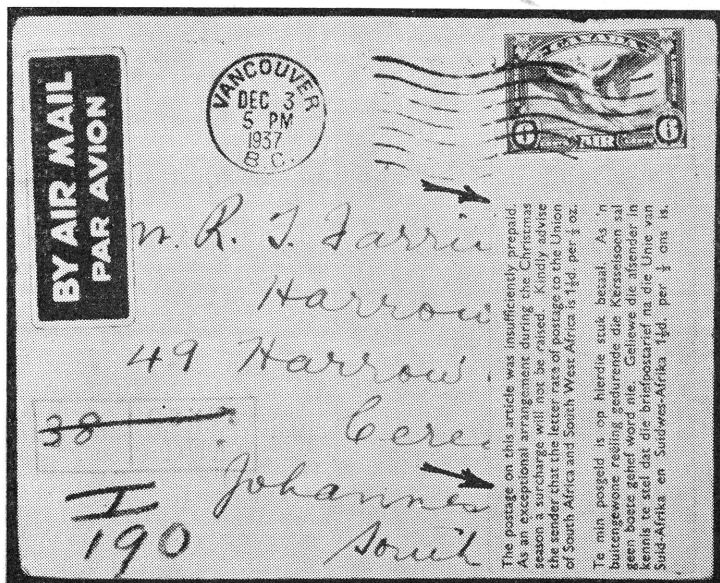 BY AIR MAIL
PAR AVION
VANCOUVER
DEC 3
5 PM
1937
B.C.
CANADA
6 AIR 6
R. T.
Harrow
49 Harrow
38
Johannes
South
I
190
The postage on this article was insufficiently prepaid.
As an exceptional arrangement during the Christmas
season a surcharge will not be raised. Kindly advise
the sender that the letter rate of postage to the Union
of South Africa and South West Africa is 1½d. per ½ oz.
Te min posgeld is op hierdie stuk betaal. As 'n
buitengewone reëling gedurende die Kersseisoen sal
geen boete gehef word nie. Geliewe die afsender in
kennis te stel dat die briefpostarief na die Unie van
Suid-Afrika en Suidwes-Afrika 1½d. per ½ ons is.